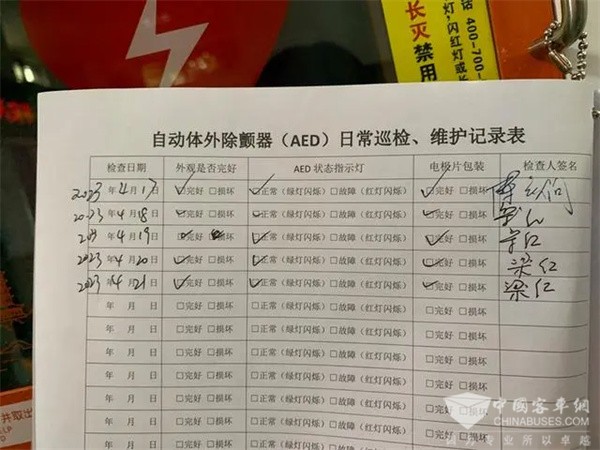 电话 400-700-
灯,闪红灯或长
长灭
禁用
自动体外除颤器(AED)日常巡检、维护记录表
检查日期 外观是否完好 AED 状态指示灯 电极片包装 检查人签名
2023年4月17日 ☑完好 □损坏 ☑正常(绿灯闪烁) □故障(红灯闪烁) ☑完好 □损坏
2023年4月18日 ☑完好 □损坏 ☑正常(绿灯闪烁) □故障(红灯闪烁) ☑完好 □损坏
年4月19日 ☑完好 损坏 ☑正常(绿灯闪烁) □故障(红灯闪烁) ☑完好 □损坏
2023年4月20日 ☑完好 □损坏 ☑正常(绿灯闪烁) □故障(红灯闪烁) ☑完好 □损坏 梁红
2023年4月21日 ☑完好 □损坏 ☑正常(绿灯闪烁) □故障(红灯闪烁) ☑完好 □损坏 梁红
年 月 日 □完好 □损坏 □正常(绿灯闪烁) □故障(红灯闪烁) □完好 □损坏
年 月 日 □完好 □损坏 □正常(绿灯闪烁) □故障(红灯闪烁) □完好 □损坏
年 月 日 □完好 □损坏 □正常(绿灯闪烁) □故障(红灯闪烁) □完好 □损坏
年 月 日 □完好 □损坏 □正常(绿灯闪烁) □故障(红灯闪烁) □完好 □损坏
年 月 日 □完好 □损坏 □正常(绿灯闪烁) □故障(红灯闪烁) □完好 □损坏
年 月 日 □完好 □损坏 □正常(绿灯闪烁) □故障(红灯闪烁) □完好
年 月 日 □完好 □损坏 □正常(绿灯闪烁) □故障(红灯闪烁)
并取出
中国客车网
CHINABUSES.COM
因为专业 所以卓越